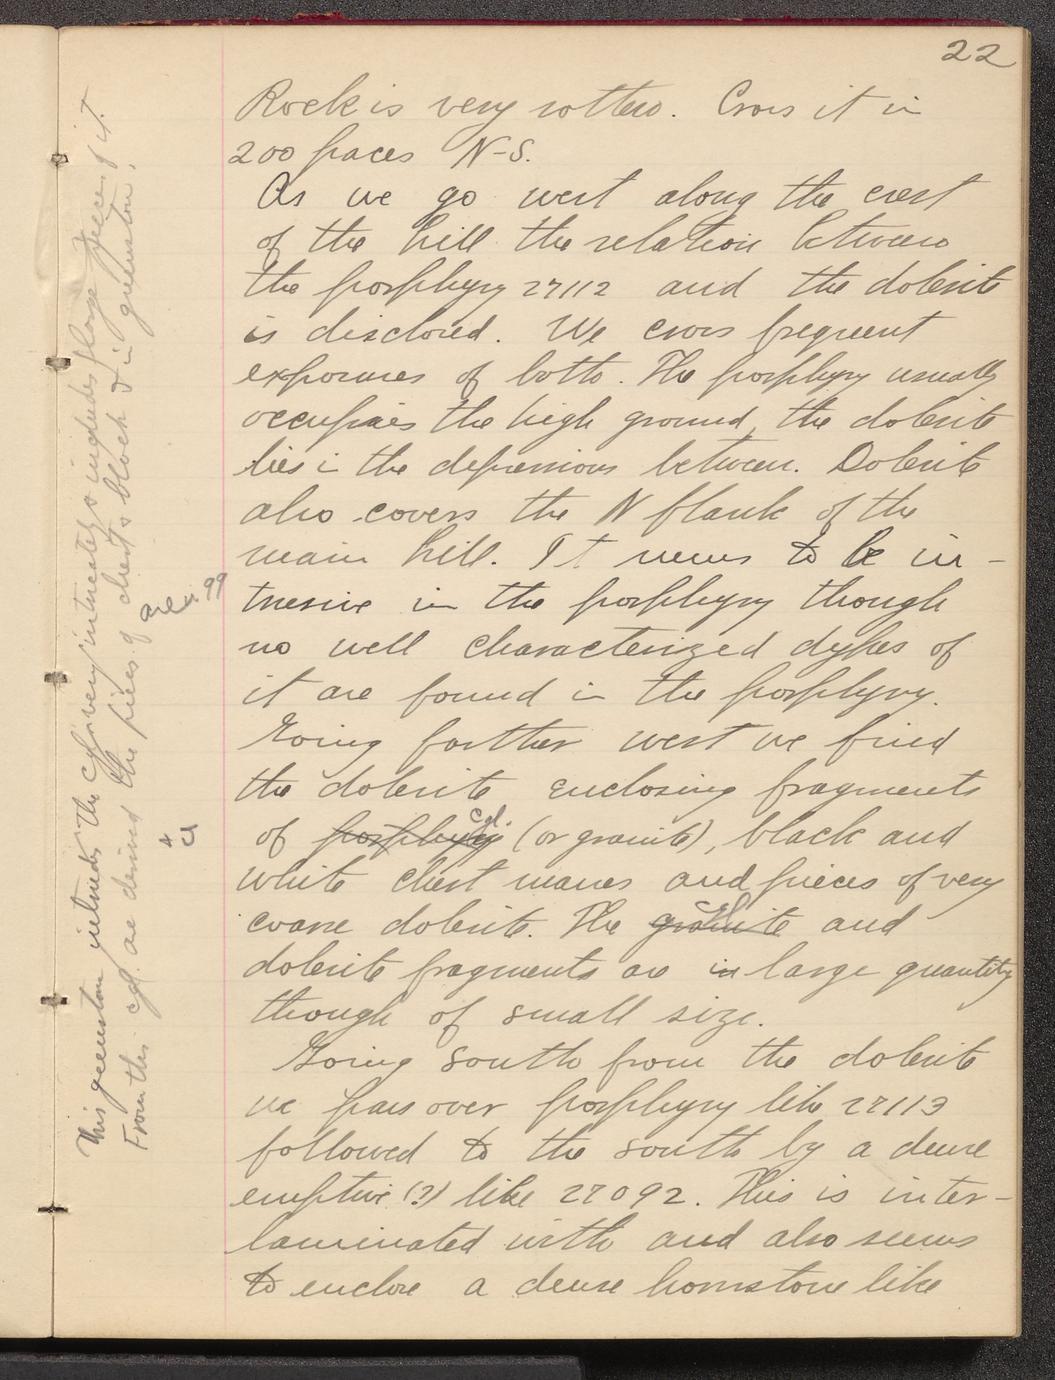 22
Rock is very rotten. Cross it in
200 paces N-S.
As we go west along the crest
of the hill the relation between
the porphyry 27112 and the dolerite
is disclosed. We cross frequent
exposures of both. The porphyry usually
occupies the high ground, the dolerite
lies in the depressions between. Dolerite
also covers the N flank of the
main hill. It seems to be in-
trusive in the porphyry though
no well characterized dykes of
it are found in the porphyry.
Going farther west we find
the dolerite enclosing fragments
of porphyry cgl. (or granite), black and
white chert masses and pieces of very
coarse dolerite. The granite cgl and
dolerite fragments are in large quantity
though of small size.
Going south from the dolerite
we pass over porphyry like 27113
followed to the south by a dense
eruptive (?) like 27092. This is inter-
laminated with and also seems
to enclose a dense hornstone like
This greenston intrudes the cgl very intricately & includes large pieces of it.
From this cgl. are derived the pieces of chert & block & in greenston.
99